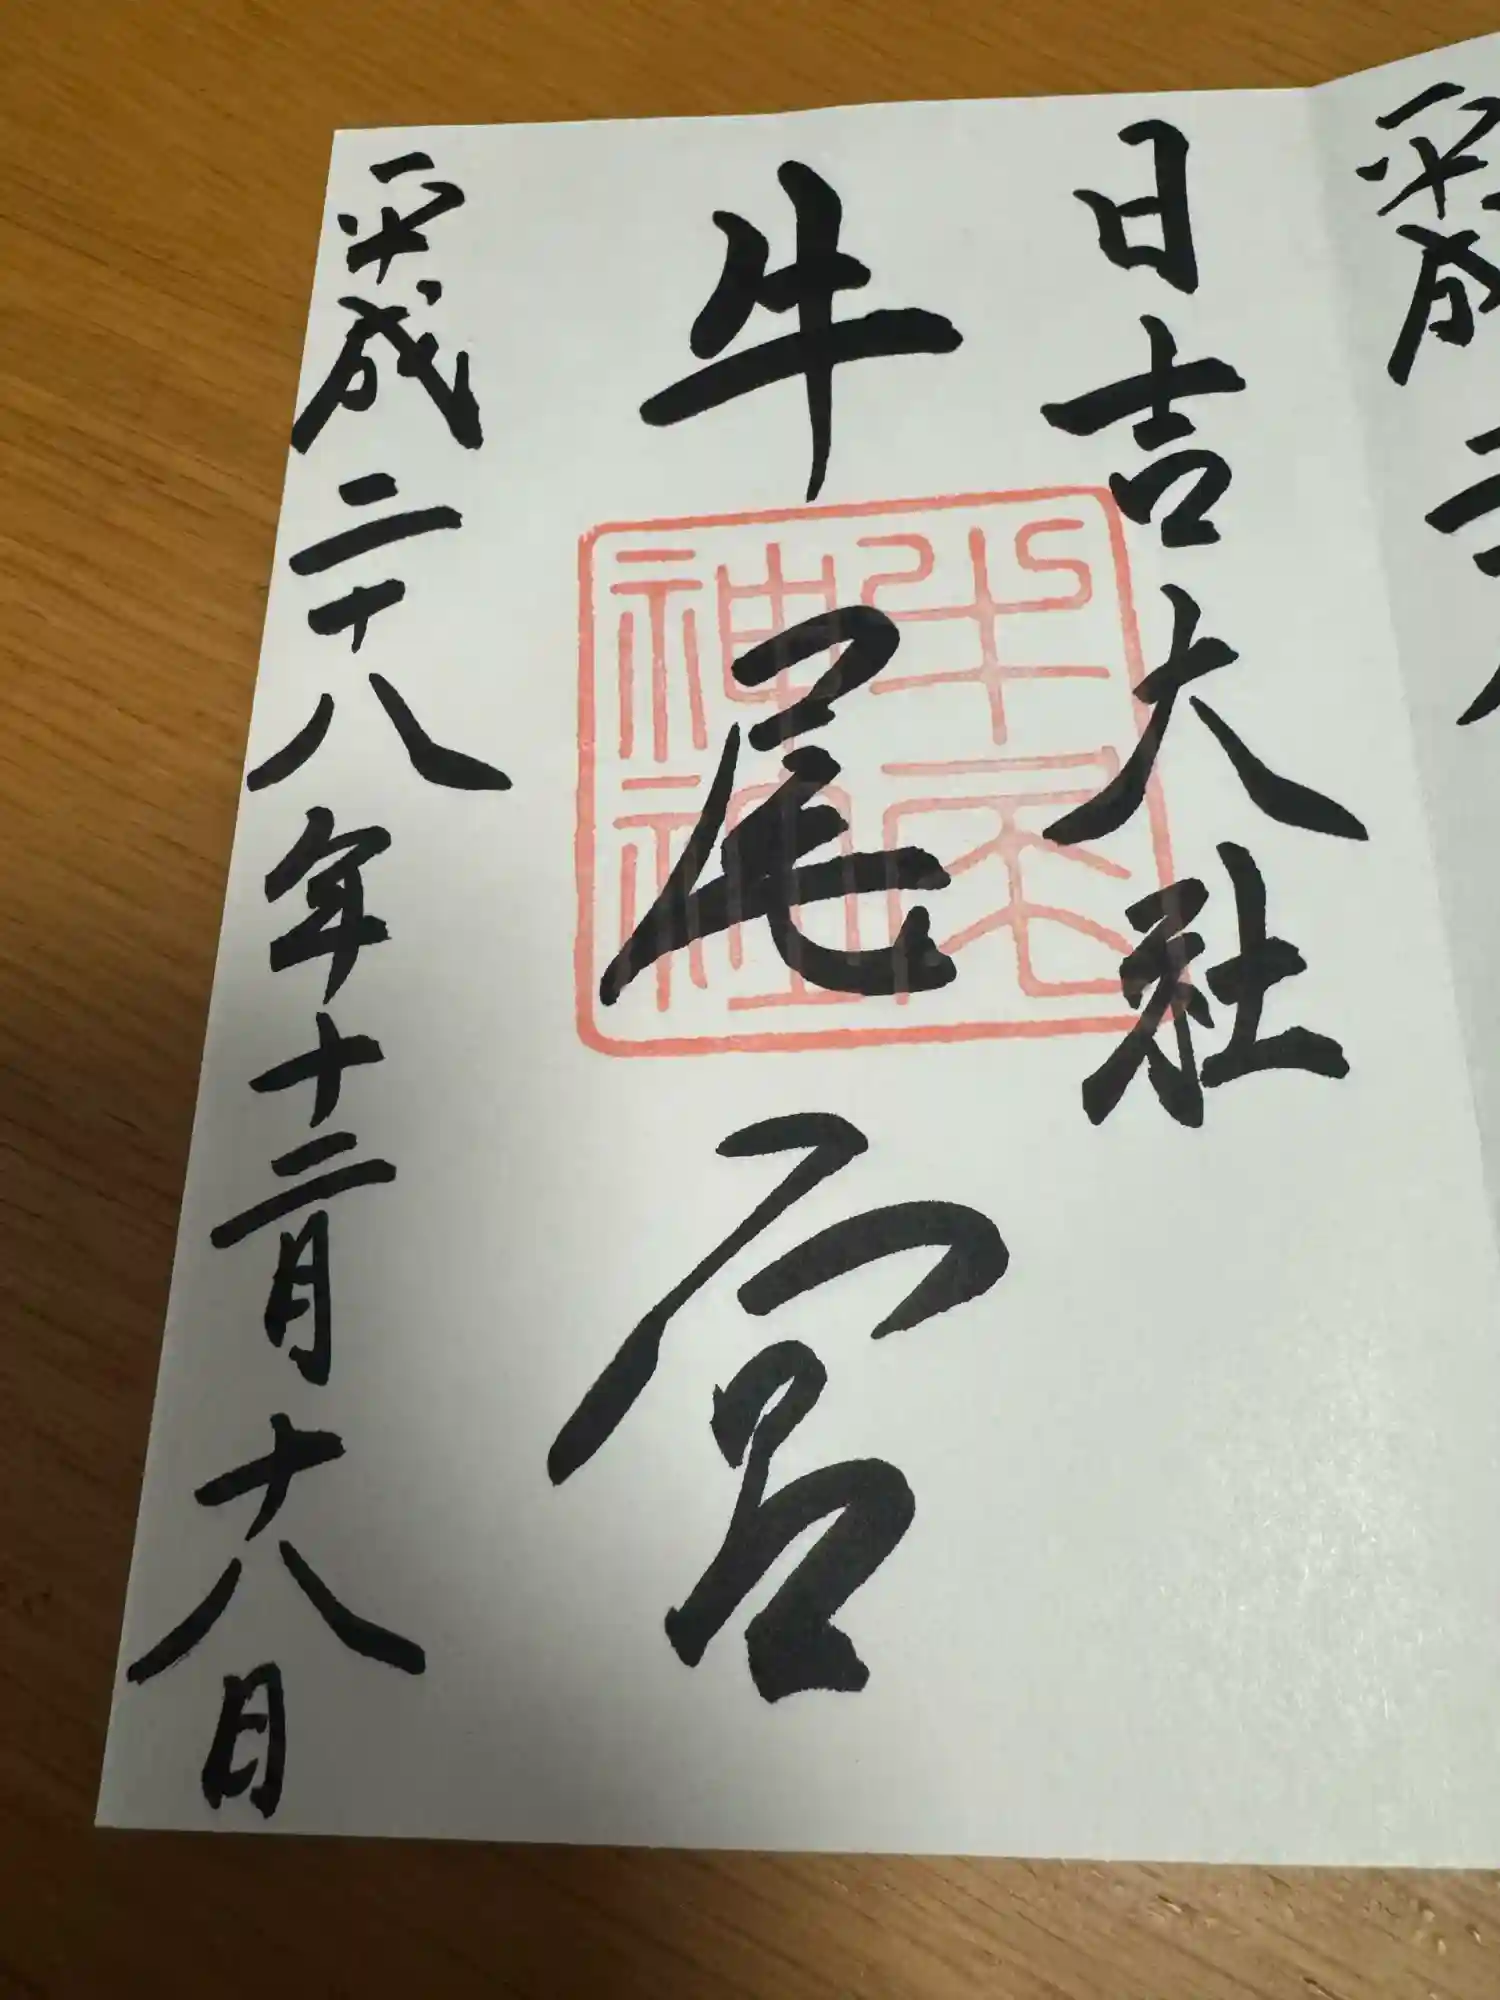 平成二
日吉大社
牛尾宮
牛尾神社
平成二十八年十二月十八日